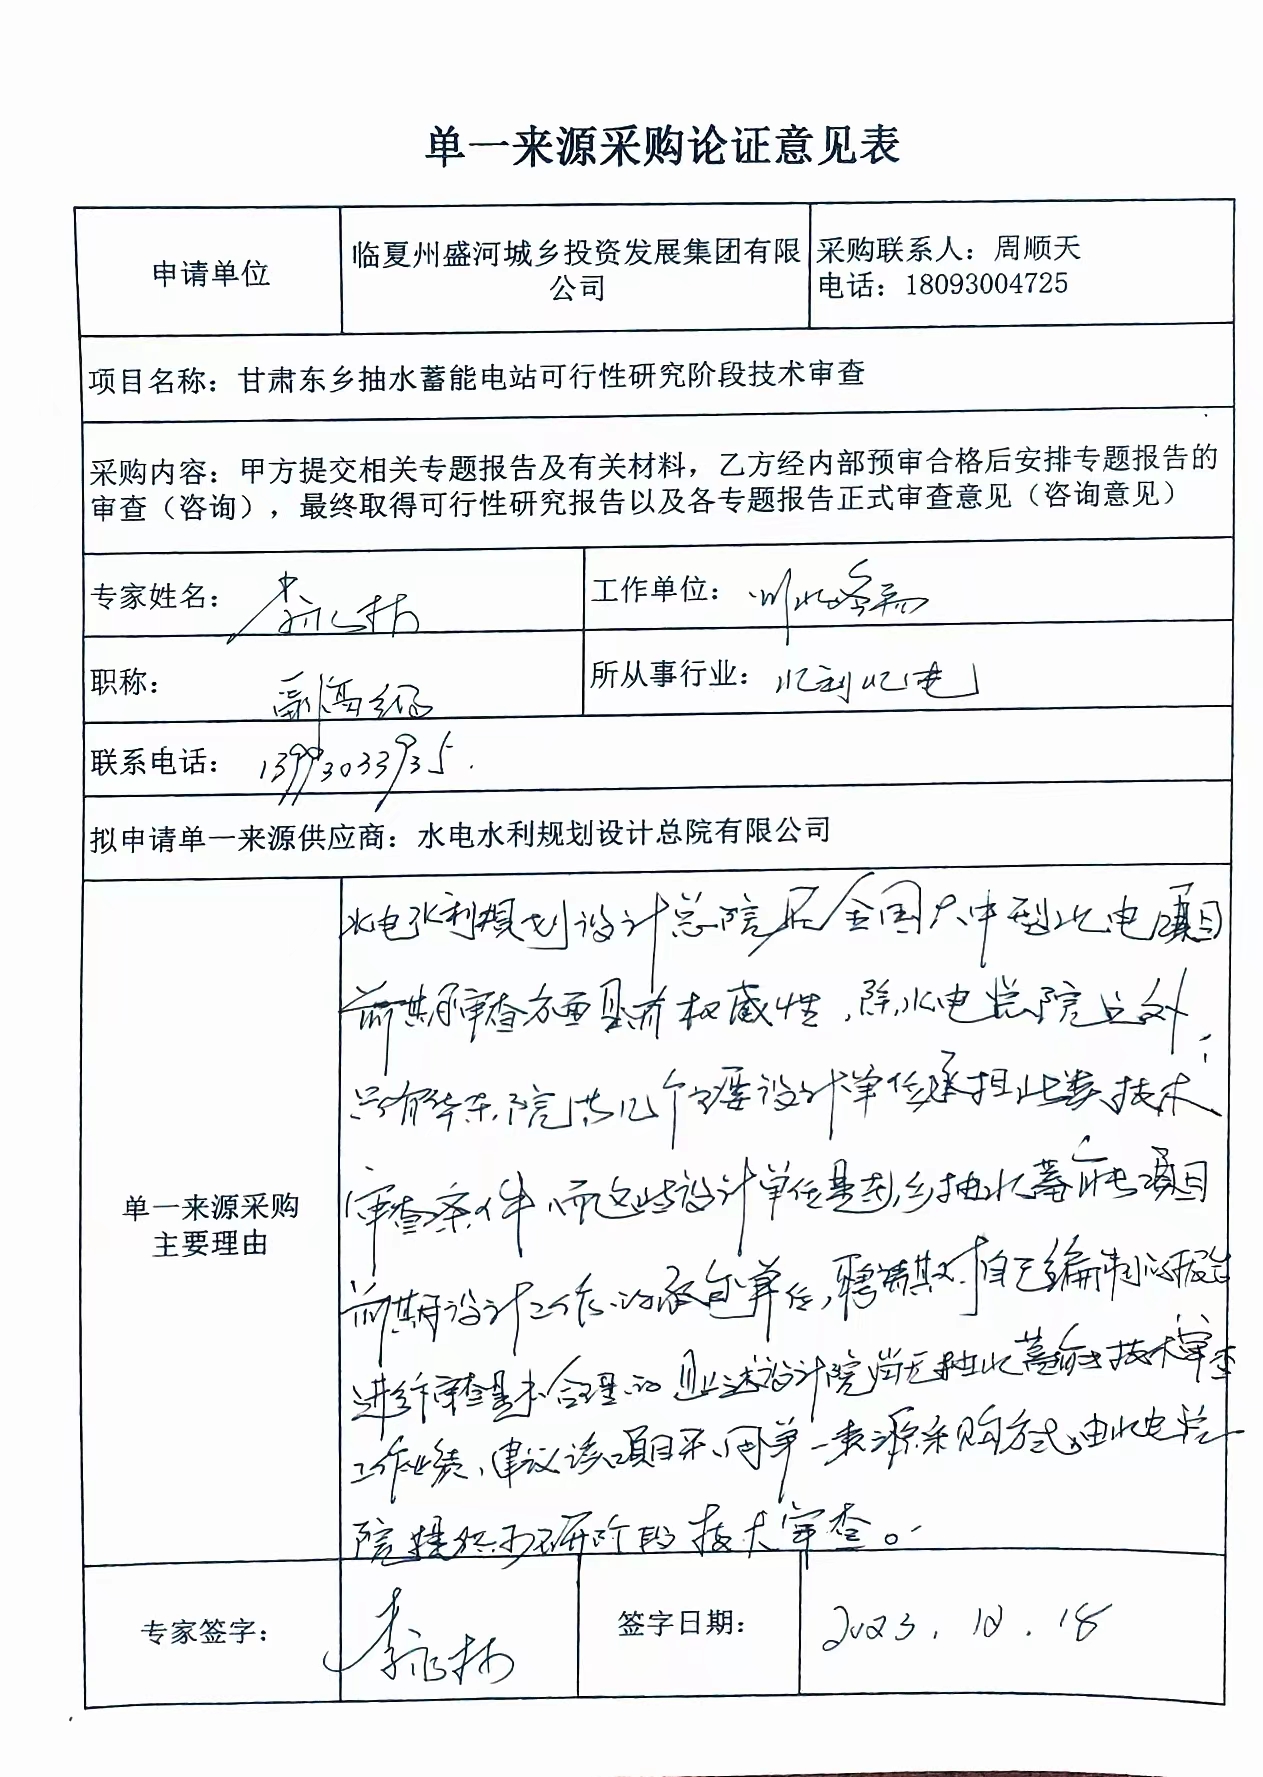 单一来源采购论证意见表
申请单位
临夏州盛河城乡投资发展集团有限
公司
采购联系人：周顺天
电话：18093004725
项目名称：甘肃东乡抽水蓄能电站可行性研究阶段技术审查
采购内容：甲方提交相关专题报告及有关材料，乙方经内部预审合格后安排专题报告的
审查（咨询），最终取得可行性研究报告以及各专题报告正式审查意见（咨询意见）
专家姓名：
工作单位：
职称：副高级
所从事行业：水利水电
联系电话：13993033935.
拟申请单一来源供应商：水电水利规划设计总院有限公司
单一来源采购
主要理由
水电水利规划设计总院在全国大中型水电项目
前期审查方面具有权威性，除水电总院之外，
只有华东院共几个主要设计单位承担此类技术
审查条件，而这些设计单位是东乡抽水蓄能电项目
前期设计工作的承包单位，聘请其对自己编制的报告
进行审查是不合理的，且上述设计院尚无抽水蓄能电技术审查
工作业绩，建议该项目采用单一来源采购方式，由水电总
院提供可研阶段技术审查。
专家签字：
签字日期：
2023.12.18